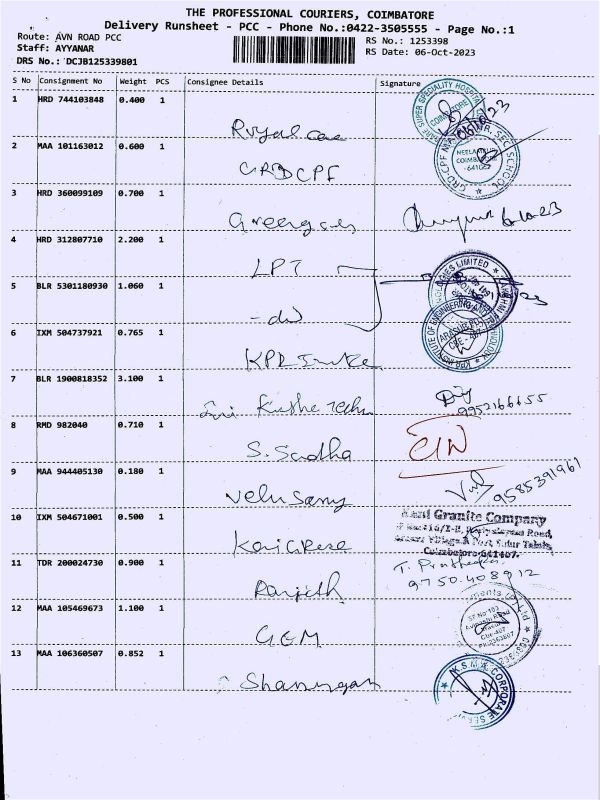 THE PROFESSIONAL COURIERS, COIMBATORE
Delivery Runsheet - PCC - Phone No.:0422-3505555 - Page No.:1
Route: AVN ROAD PCC RS No.: 1253398
Staff: AYYANAR RS Date: 06-Oct-2023
DRS No.: DCJB125339801
S No Consignment No Weight PCS Consignee Details Signature
1 HRD 744103848 0.400 1
Royal care
2 MAA 101163012 0.600 1
CRDCPF
3 HRD 360099109 0.700 1
4 HRD 312807710 2.200 1
LPT
5 BLR 5301180930 1.060 1
-do
6 IXM 504737921 0.765 1
KPR
7 BLR 1900818352 3.100 1
Sri Tech 9952166655
8 RMD 982040 0.710 1
S. Sudha
9 MAA 944405130 0.180 1
Velusamy 9585391961
10 IXM 504671001 0.500 1
Kani Granite Company
Coimbatore-641407.
11 TDR 200024730 0.900 1
Ranjith 9750408912
12 MAA 105469673 1.100 1
GEM
13 MAA 106360507 0.852 1
Shanmugam
K.S.M. CORPORATE